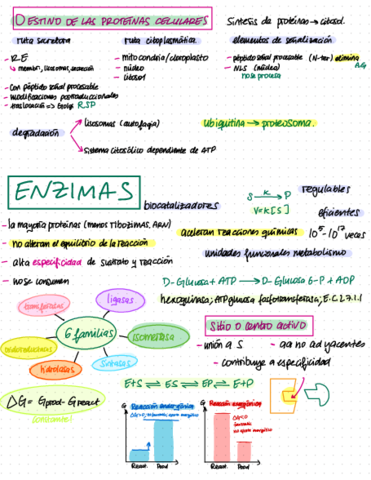 DESTINO DE LAS PROTEÍNAS CELULARES
Síntesis de proteínas → citosol.
ruta secretora
ruta citoplasmática
elementos de señalización
- RE
↳ membr, lisosomas, secreción
- con péptido señal procesable
- modificaciones postraduccionales
- traslocación => Golgi RSP
- mitocondria/cloroplasto
- núcleo
- citosol
- péptido señal procesable (N-ter) elimina
- NLS (núcleo)
no se procesa
degradación
lisosomas (autofagia)
sistema citosólico dependiente de ATP
ubiquitina → proteosoma.
ENZIMAS
biocatalizadores
S →k P
V=K[S]
regulables
eficientes
- la mayoría proteínas (menos ribozimas, ARN)
- no alteran el equilibrio de la reacción
- alta especificidad de sustrato y reacción
- no se consumen
aceleran reacciones químicas 10⁵-10¹⁷ veces
unidades funcionales metabolismo
D-Glucosa + ATP → D-Glucosa 6-P + ADP
hexoquinasa; ATP glucosa fosfotransferasa; E.C.2.7.1.1
6 familias
transferasas
ligasas
isomerasa
oxidorreductasas
hidrolasas
Sitio o centro activo
- unión a S
- aa no adyacentes
- contribuye a especificidad
E+S ⇌ ES ⇌ EP ⇌ E+P
ΔG = Gprod - Greact
constantes
G
Reacción endergónica
React. Prod
G
Reacción exergónica
React. Prod